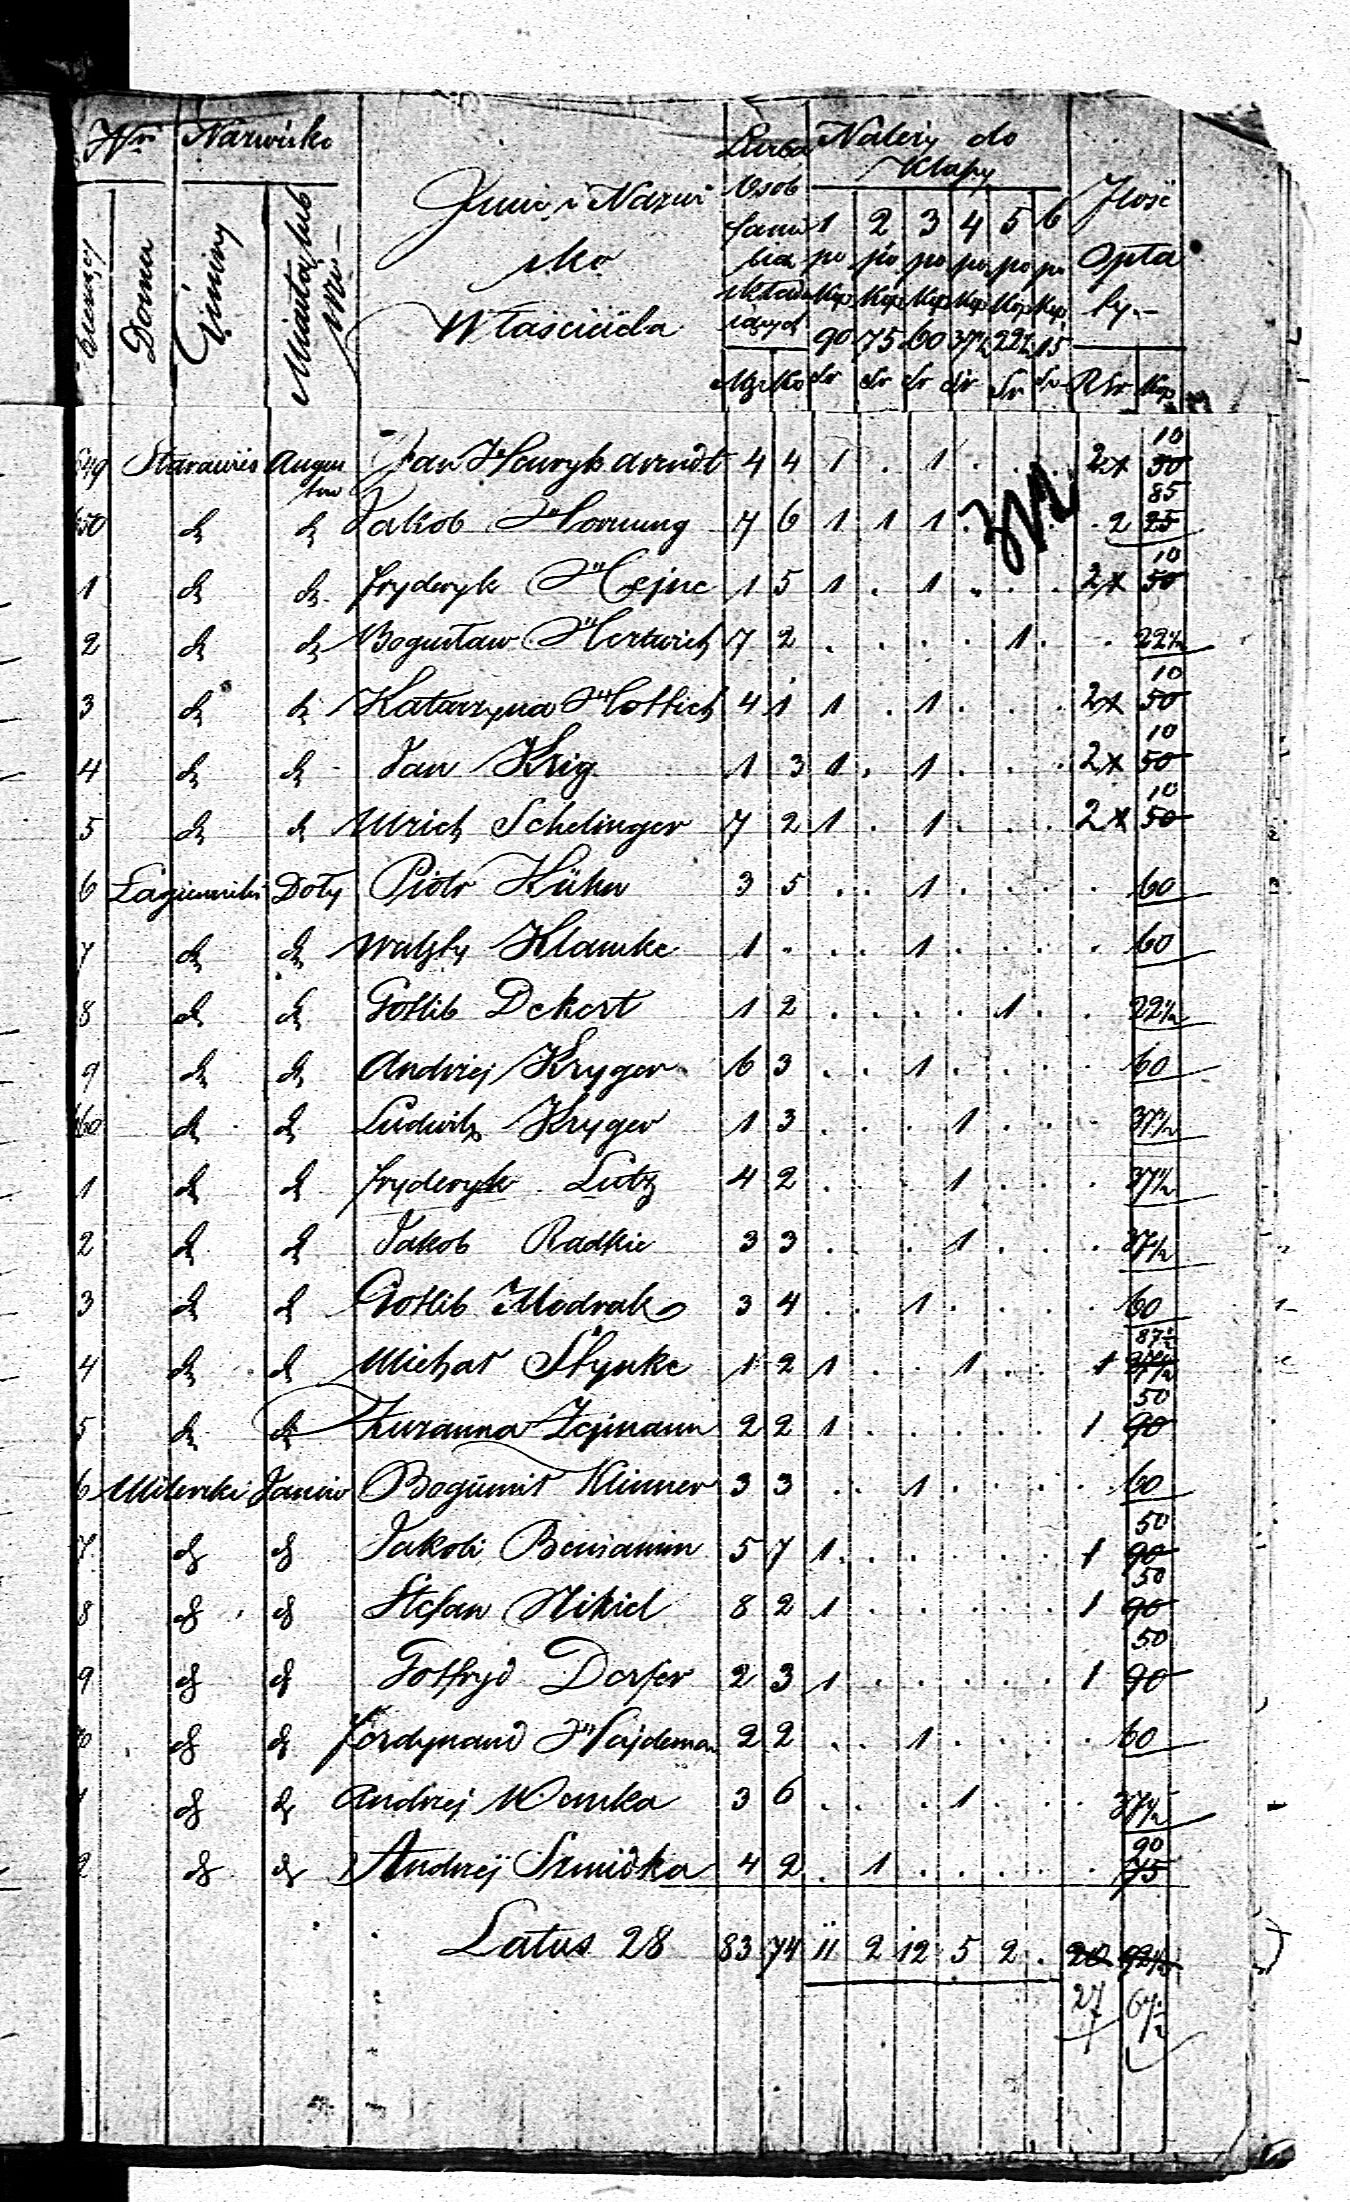 Nri Nazwisko
Domu
Gminy
Miasta lub Wsi
Jmie i Nazwi
sko
Właściciela
Liczba
Osob
familia
składa
jących
Męż Ko
Należy do
Klasy
1 2 3 4 5 6
po po po po po po
Kop Kop Kop Kop Kop Kop
90 75 60 37½ 22½ 15
Sr Sr Sr Sr Sr Sr
Jlość
Opła
ty.-
RSr Kop
10
649 Starawieś Augus Jan Henryk Arendt 4 4 1 . 1 . . . 2 50
tow
85
650 d d Jakob Hornung 7 6 1 1 1 . . 2 25
10
1 d d Fryderyk Hejne 1 5 1 . 1 . . . 2 50
2 d d Bogusław Hertwich 7 2 . . . . 1 . . 22½
10
3 d d Katarzyna Hottich 4 1 1 . 1 . . . 2 50
10
4 d d Jan Krig 1 3 1 . 1 . . . 2 50
10
5 d d Ulrich Schelinger 7 2 1 . 1 . . . 2 50
6 Łagiewniki Doły Piotr Kühn 3 5 . . 1 . . . . 60
7 d d Klamke 1 . . . 1 . . . . 60
8 d d Gotlib Dekert 1 2 . . . . 1 . . 22½
9 d d Andrzej Kryger 6 3 . . 1 . . . . 60
660 d d Ludwik Kryger 1 3 . . . 1 . . . 37½
1 d d Fryderyk Lutz 4 2 . . . 1 . . . 37½
2 d d Jakob Radkie 3 3 . . . 1 . . . 37½
3 d d Gotlib Modrak 3 4 . . 1 . . . . 60
87½
4 d d Michał Stynke 1 2 1 . . 1 . . 1 37½
50
5 d d Zuzanna Zejmann 2 2 1 . . . . . 1 90
6 Mileszki Janów Bogumił Klinner 3 3 . . 1 . . . . 60
50
7 d d Jakob Beniamin 5 7 1 . . . . . 1 90
50
8 d d Stefan Nikiel 8 2 1 . . . . . 1 90
50
9 d d Gotfryd Dorfer 2 3 1 . . . . . 1 90
70 d d Ferdynand Hajdeman 2 2 . . 1 . . . . 60
1 d d Andrzej Wenska 3 6 . . . 1 . . . 37½
90
2 d d Andrzej Szmidka 4 2 . 1 . . . . . 75
Latus 28 83 74 11 2 12 5 2 . 20 92½
27 67½